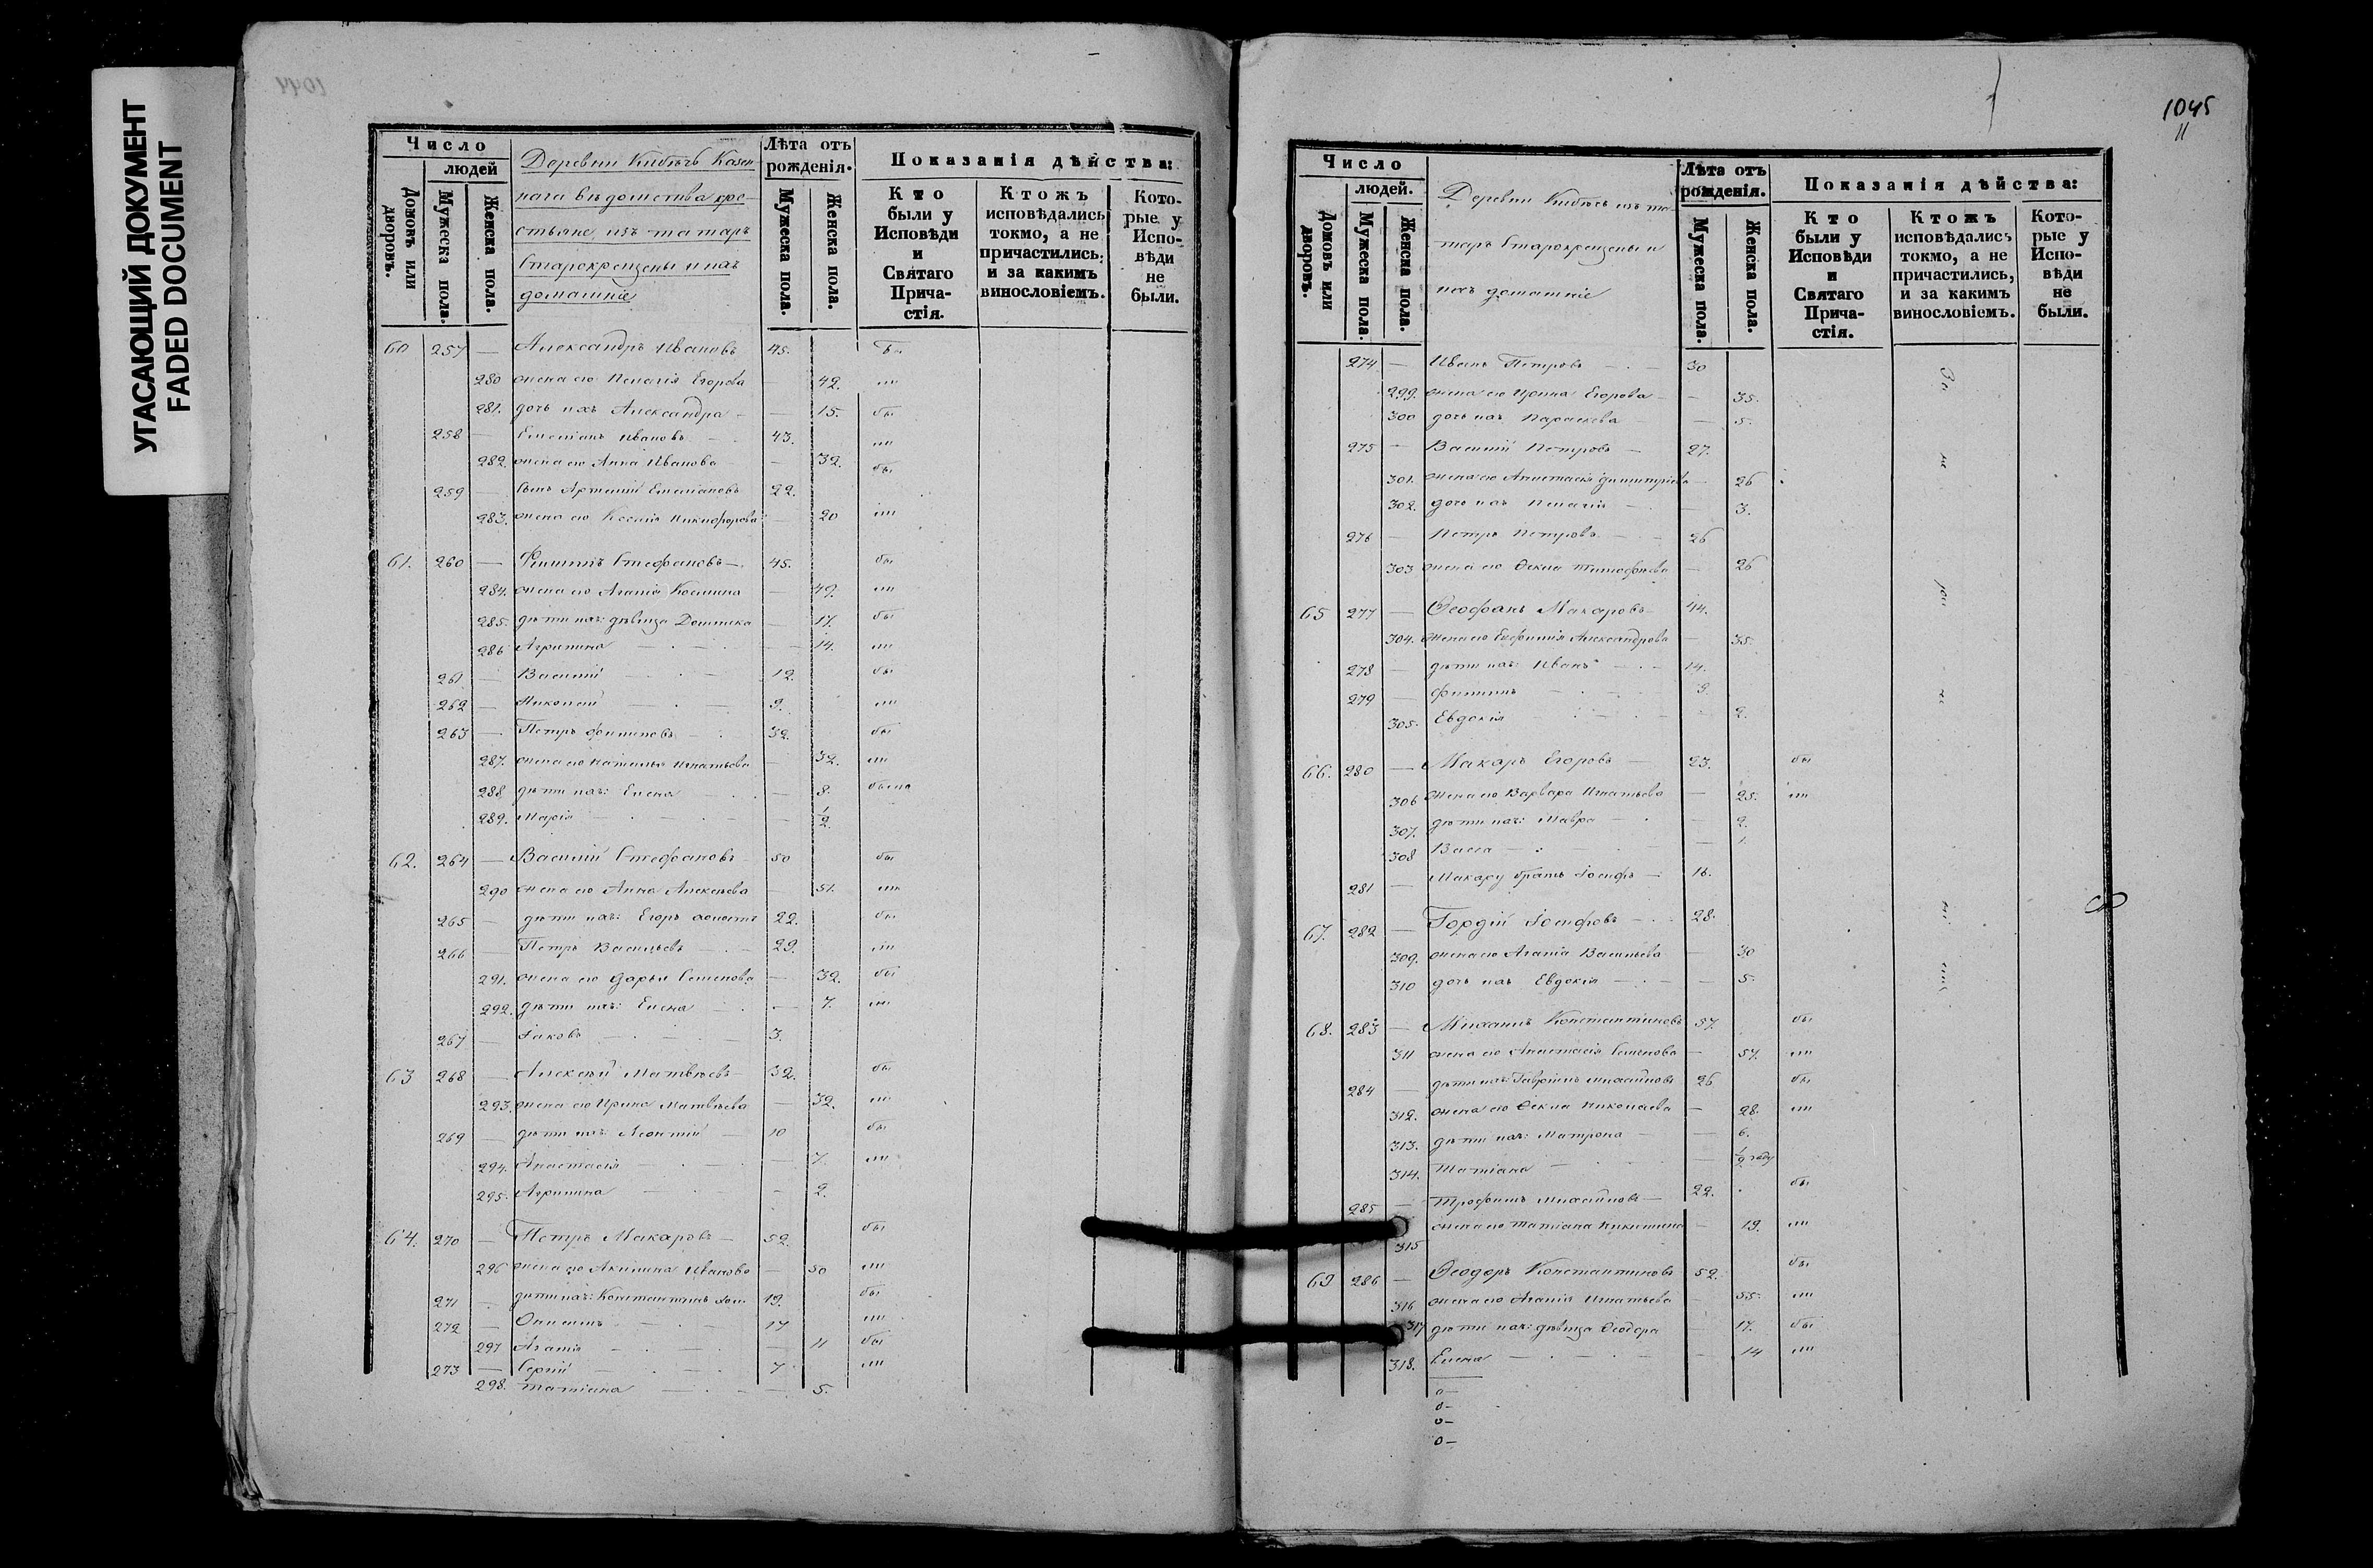 УГАСАЮЩИЙ ДОКУМЕНТ
FADED DOCUMENT
Число
людей
Домовъ или дворовъ.
Мужеска пола.
Женска пола.
Деревни Кибячь Казен-
наго вѣдомства кре-
стьяне изъ татаръ
Старокрещены и ихъ
домашніе
Лѣта отъ рожденія.
Мужеска пола.
Женска пола.
Показанія дѣйства:
Кто были у Исповѣди и Святаго Прича-стія.
Ктожъ исповѣдались токмо, а не причастились, и за какимъ винословіемъ.
Кото-рые у Испо-вѣди не были.
60 257 — Александръ Ивановъ 45. бы
280 жена его Пелагія Егорова — 42. ли
281. дочь ихъ Александра — — 15. бы
258 — Емеліанъ Ивановъ — 43. ли
282. жена его Анна Иванова — 32. бы
259 — сынъ Артемій Емеліановъ 22.
283. жена его Ксенія Никифорова — 20 ли
61. 260 — Филиппъ Стефановъ — 45. бы
284. жена его Агапія Космина — 49. ли
285. дѣти ихъ: дѣвица Домника — 17. бы
286 Агрипина — — 14. ли
261 — Василій — 12. бы
262 — Николай — 9. ли
263 — Петръ Филиповъ — 32. бы
287. жена его Наталья Игнатьева — 32. ли
288 дѣти ихъ: Елена — — 8. была
289. Марія — — 1/2.
62. 264 — Василій Стефановъ 50 бы
290 жена его Анна Алексѣева — 51. ли
265 — дѣти ихъ: Егоръ холостъ 22. бы
266 — Петръ Васильевъ — 29. ли
291. жена его Дарья Семенова — 32. бы
292. дѣти ихъ: Елена — — 7. ли
267 — Іаковъ — 3.
63 268 — Алексѣй Матвѣевъ — 32. бы
293. жена его Ирина Матвѣева — 32. ли
269 — дѣти ихъ: Леонтій — 10 бы
294. Анастасія — — 7. ли
295. Агрипина — — 2.
64. 270 — Петръ Макаровъ — 52. бы
296 жена его Акилина Иванова — 50 ли
271 — дѣти ихъ: Константинъ хол. 19. бы
272 — Онисимъ — 17 ли
297 Агапія — — 11 бы
273 — Сергій — 7 ли
298. Татіана — — 5.
1045
11
Число
людей.
Домовъ или дворовъ.
Мужеска пола.
Женска пола.
Деревни Кибячь изъ та-
таръ Старокрещены и
ихъ домашніе
Лѣта отъ рожденія.
Мужеска пола.
Женска пола.
Показанія дѣйства:
Кто были у Исповѣди и Святаго Прича-стія.
Ктожъ исповѣдались токмо, а не причастились, и за какимъ винословіемъ.
Кото-рые у Испо-вѣди не были.
274 — Иванъ Петровъ — 30
299. жена его Ирина Егорова — — 35.
300 дочь ихъ Параскева — — 5.
275 — Василій Петровъ — 27.
301. жена его Анастасія Димитріева — 26
302. дочь ихъ Пелагія — — 3.
276 — Петръ Петровъ — 26
303 жена его Ѳекла Тимофѣева — 26
65 277 — Ѳеофанъ Макаровъ — 44.
304. жена его Евфимія Александрова — 35.
278 — дѣти ихъ: Иванъ — 14.
279 — Филипъ — 9.
305. Евдокія — — 2.
66. 280 — Макаръ Егоровъ — 23. бы
306 жена его Варвара Игнатьева — 25. ли
307. дѣти ихъ: Мавра — — 2.
308 Васса — — 1.
281 — Макару братъ Іосифъ — 16.
67. 282 — Гордій Іосифовъ — 28.
309. жена его Агапія Васильева — 30
310 дочь ихъ Евдокія — — 5.
68. 283 — Михаилъ Константиновъ 57. бы
311 жена его Анастасія Семенова — 57. ли
284 — дѣти ихъ: Гавріилъ Михайловъ 26 бы
312. жена его Ѳекла Николаева — 28. ли
313. дѣти ихъ: Матрона — — 6.
314. Татіана — — 1/2 году
285 — Трофимъ Михайловъ — 22. бы
315 жена его Татіана Никитина — 19. ли
69 286 — Ѳеодоръ Константиновъ 52. бы
316 жена его Агапія Игнатьева 55. ли
317 дѣти ихъ: дѣвица Ѳеодора 17. бы
318. Елена — — 14 ли